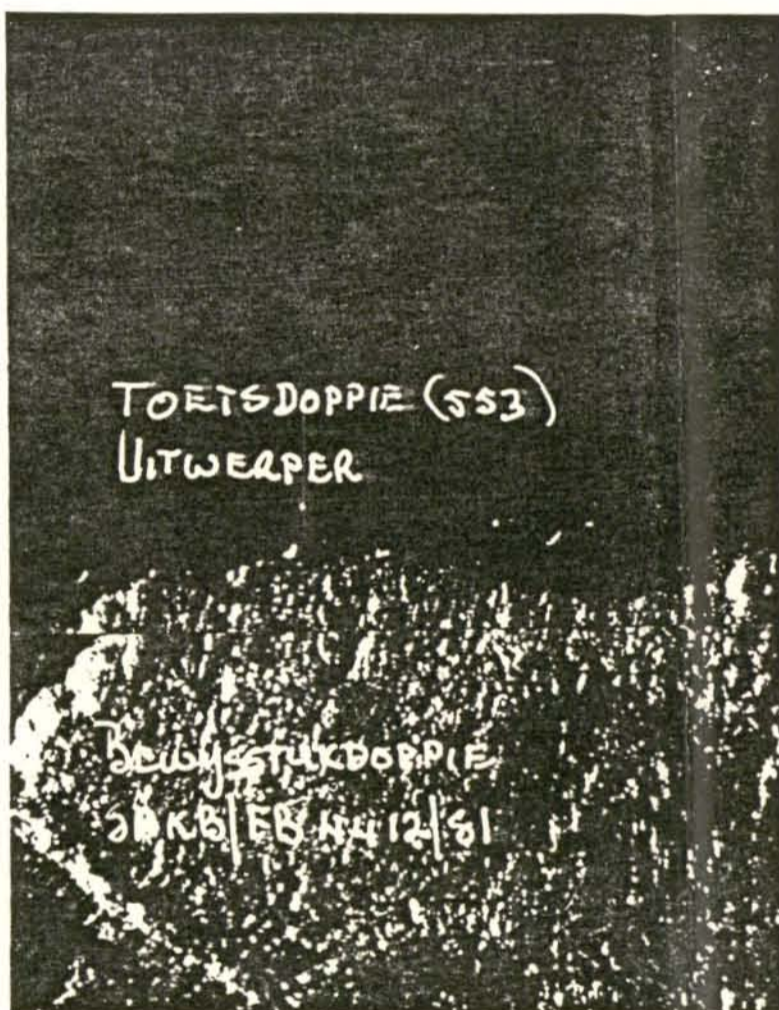 TOETSDOPPIE (553)
UITWERPER
BEWYSSTUKDOPPIE
SBKB/EB 4412/81